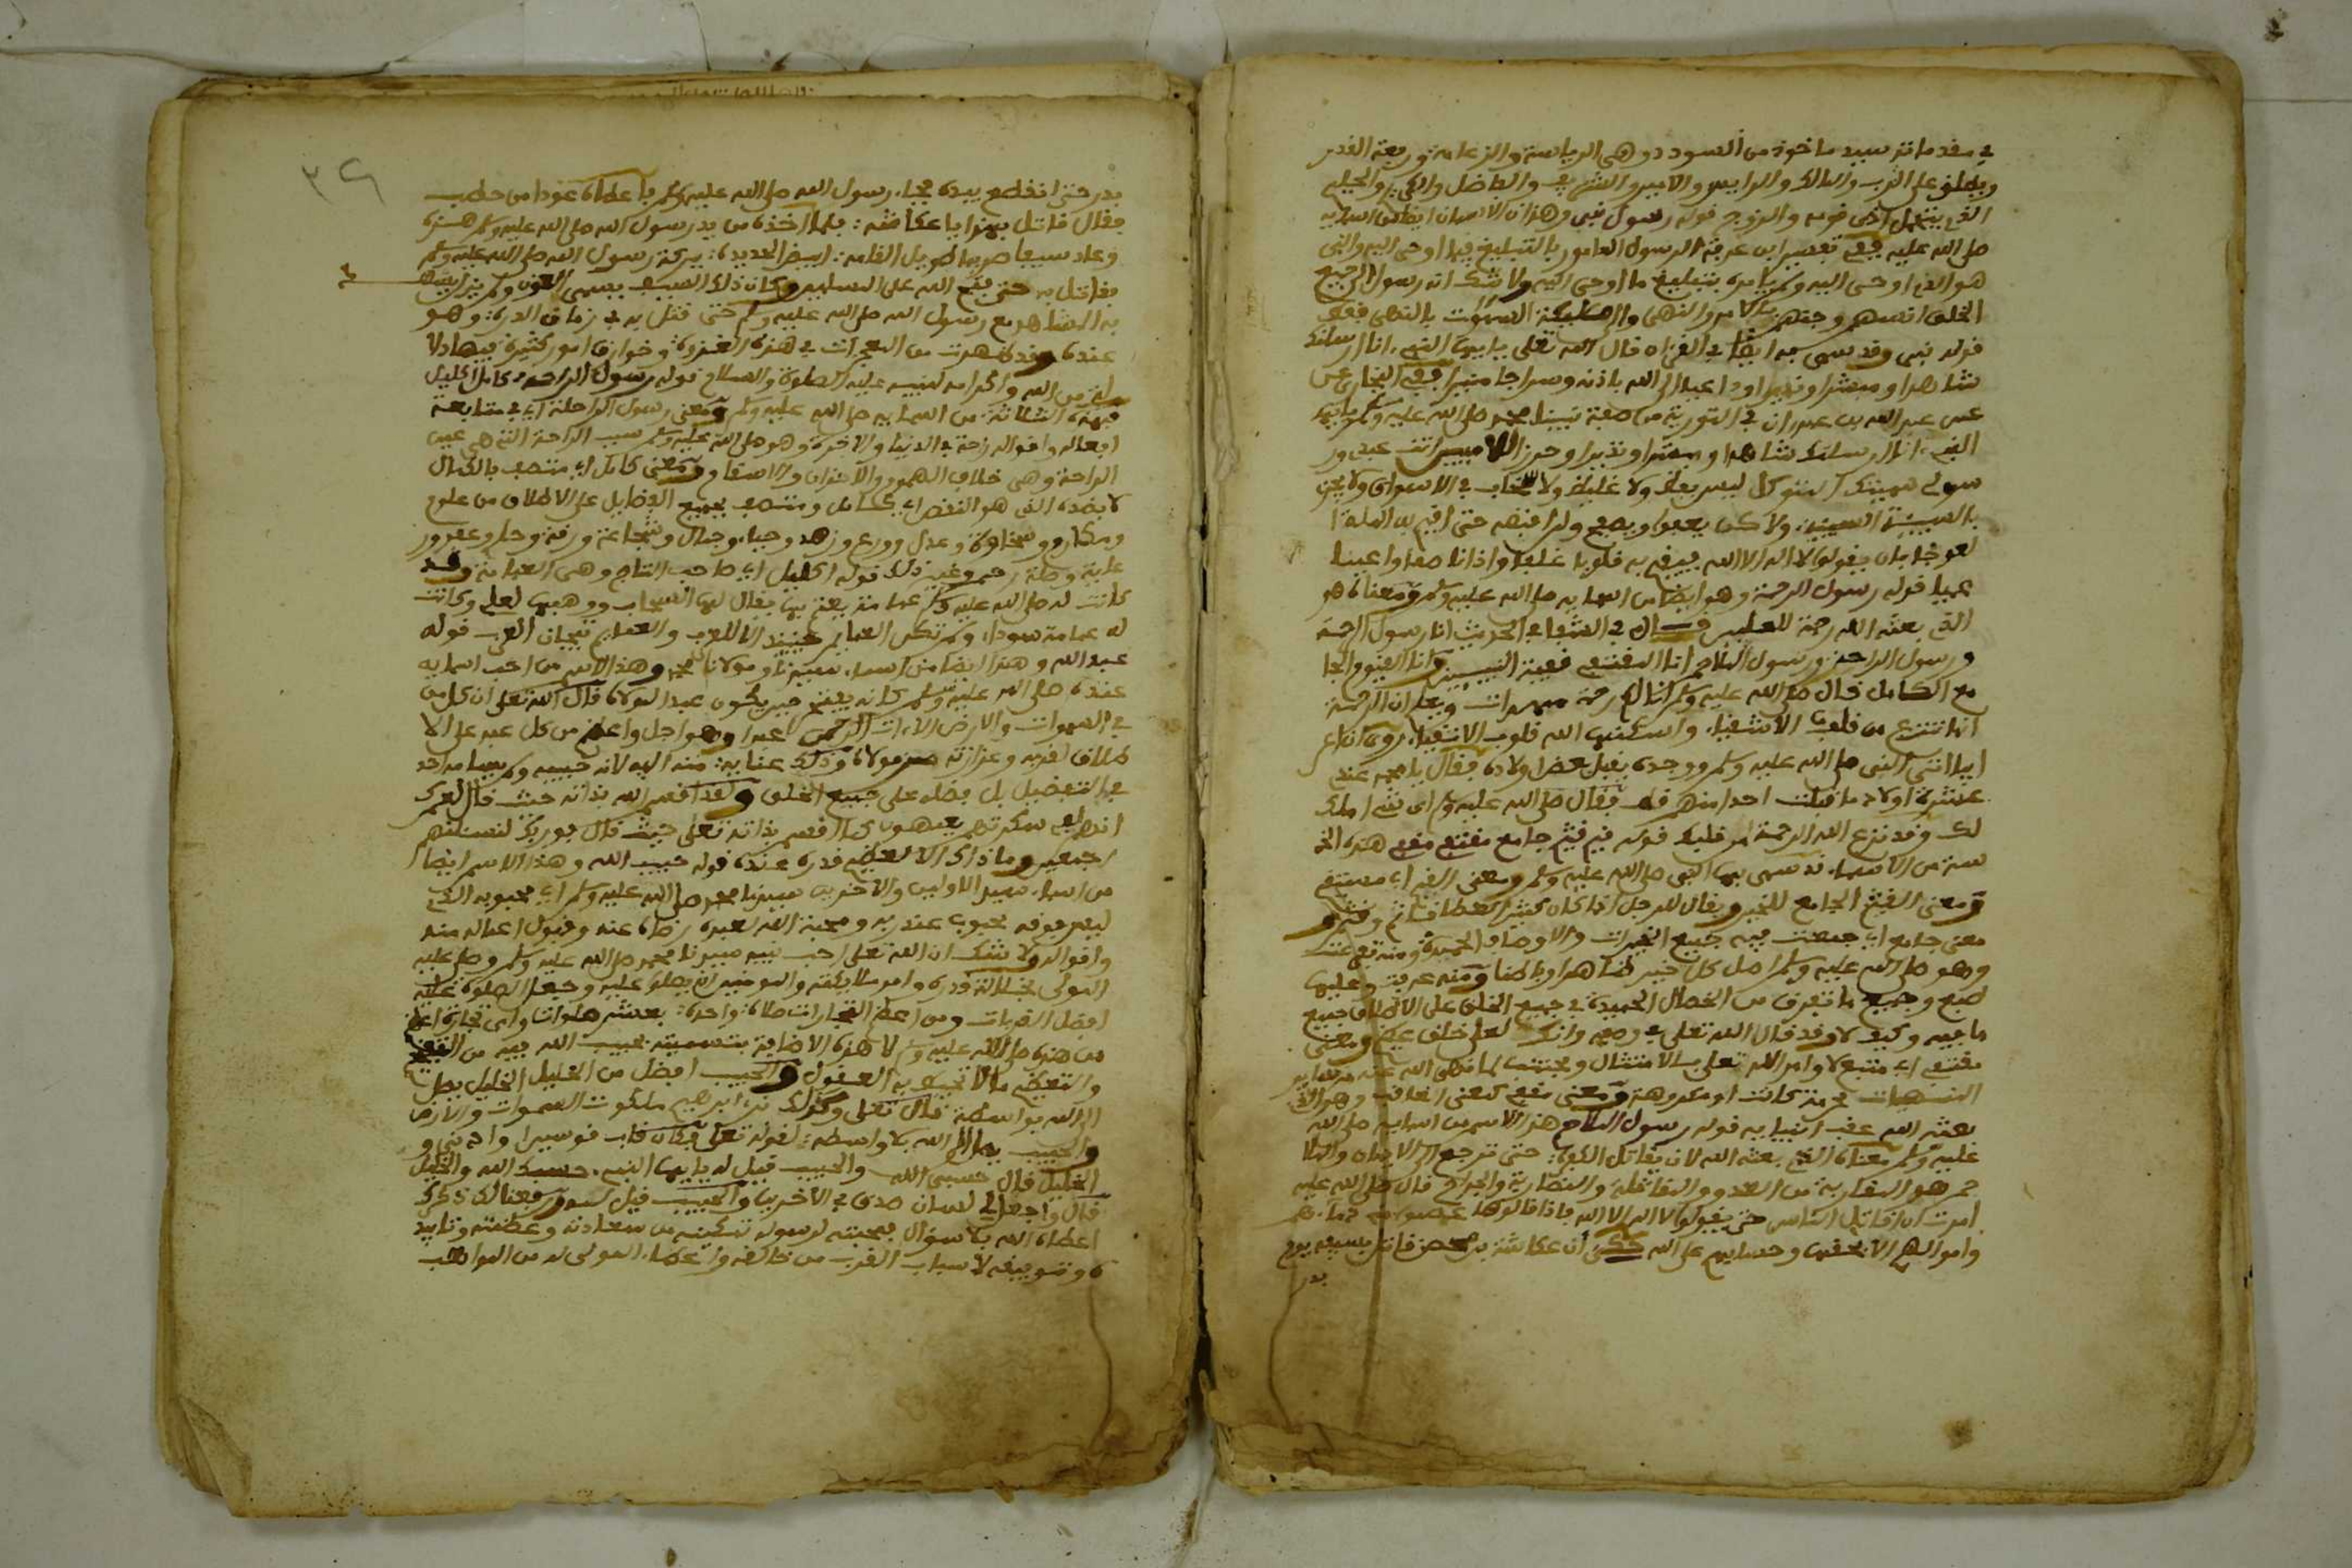 في مقدماته سيد ماخوذ من السودد وهي الرياسة والزعامة ورفعة القدر
ويطلق على الرب والمالك والرايس والامير والشريف والفاضل والكريم والحليم
الذي يتحمل اذى قومه والزوج قوله رسول نبي وهذان الاسمان ايضا من اسمايه
صلى الله عليه ففي تفسير ابن عرفة الرسول المامور بالتبليغ فيما اوحي اليه والنبي
هو الذي اوحي اليه ولم يامره بتبليغ ما اوحي اليه ولا شك انه رسول الى جميع
الخلق انسهم وجنهم بالامر والنهي
قوله نبي وقد سمي به ايضا في القرءان قال الله تعلى يا ايها النبيء انا ارسلناك
شاهدا ومبشرا ونذيرا وداعيا الى الله باذنه وسراجا منيرا ففي البخاري عن
عن عبد الله بن ان في التورية من صفة نبينا محمد صلى الله عليه وسلم يا ايها
النبيء انا ارسلناك شاهدا ومبشرا ونذيرا وحرزا للاميين انت عبدي ور
سولي سميتك المتوكل ليس بفظ ولا غليظ ولا سخاب في الاسواق ولا يجزي
بالسيئة السيئة ولاكن يعفوا ويصفح ولن اقبضه حتى اقيم به الملة ا
لعوجا بان يقولوا لا اله الا الله ويفتح به قلوبا غلفا واذانا صما واعينا
عميا قوله رسول الرحمة وهو ايضا من اسمايه صلى الله عليه وسلم ومعناه هو
الذي بعثه الله رحمة للعلمين قال في الشفا في الحديث انا رسول الرحمة
ورسول الراحة ورسول الملاحم انا المقتفي قفيت النبيين وانا القيم والجا
مع الكامل قال صلى الله عليه وسلم انا لكم رحمة مهدات ويقال ان الرحمة
انما تنتزع من قلوب الاشقياء واسكنها الله قلوب الاتقياء روي ان اعر
ابيا اتى النبي صلى الله عليه وسلم ووجده يقبل بعض اولاده فقال يا محمد عندي
عشرة اولاد ما قبلت احدا منهم قط فقال صلى الله عليه وسلم اي شيء املك
لك وقد نزع الله الرحمة من قلبك قوله قيم قثم جامع مقتف مقفي هذه الخم
سة من الاسماء قد سمي بها النبي صلى الله عليه وسلم ومعنى القيم اي مستقيم
ومعنى القثم الجامع للخير ويقال للرجل اذا كان كثير العطا قثام وقثم و
معنى جامع اي جمعت فيه جميع الخيرات والاوصاف الحميدة
وهو صلى الله عليه وسلم اصل كل خير ظاهرا وباطنا
وجميع ما تفرق من الخصال الحميدة في جميع الخلق على الاطلاق جميع
ما فيه وكيف لا وقد قال الله تعلى في وصفه وانك لعلى خلق عظيم ومعنى
مقتف اي متبع لاوامر الله تعلى بالامتثال ومجتنب لما نهى الله عنه من ساير
المنهيات محرمة كانت او مكروهة ومعنى مقفي كمعنى العاقب وهو الذي
بعثه الله عقب انبيايه قوله رسول الملاحم هذا الاسم من اسمايه صلى الله
عليه وسلم معناه الذي بعثه الله لان يقاتل الكفرة حتى ترجع الى الايمان والملا
حم هو المقاربة من العدو والمقاتلة والمضاربة والجراح قال صلى الله عليه
امرت ان اقاتل الناس حتى يقولوا لا اله الا الله فاذا قالوها عصموا مني دماءهم
واموالهم الا بحقها وحسابهم على الله حكي ان عكاشة بن محصن قاتل بسيفه يوم
بدر
٣٩
بدر حتى انقطع بيده فجاء رسول الله صلى الله عليه وسلم فاعطاه عودا من حطب
فقال قاتل بهذا يا عكاشة فلما اخذه من يد رسول الله صلى الله عليه وسلم هزه
وعاد سيفا صارما طويل القامة ابيض الحديدة ببركة رسول الله صلى الله عليه وسلم
فقاتل به حتى فتح الله على المسلمين وكان ذلك السيف يسمى العون ولم يزل يشهد
به المشاهد مع رسول الله صلى الله عليه وسلم حتى قتل به في زمان الردة وهو
عنده وقد ظهرت من المعجزات في هذه الغزوة وخوارق امور كثيرة فيها دلا
لة من الله واكرامه لنبيه عليه الصلوة والسلام قوله رسول الراحة كامل اكليل
فهذه الثلاثة من اسمايه صلى الله عليه وسلم ومعنى رسول الراحة اي في متابعة
افعاله واقواله راحة في الدنيا والاخرة وهو صلى الله عليه وسلم سبب الراحة التي هي عين
الراحة وهي خلاف الهموم والاحزان ومعنى كامل اي متصف بالكمال
لا بضده الذي هو النقص اي كامل ومتصف بجميع الفضايل على الاطلاق من علوم
ومكارم وسخاوة وعدل وورع وزهد وحياء وجمال وشجاعة ورقة وحلم وعفو ور
عاية وصلة رحم وغير ذلك قوله اكليل اي صاحب التاج وهي العمامة وقد
كانت له صلى الله عليه وسلم عمامة يعتم بها يقال لها السحاب ووهبها لعلي وكانت
له عمامة سوداء ولم تكن العمايم حينئذ الا للعرب والعمايم تيجان العرب قوله
عبد الله وهذا ايضا من اسماء سيدنا ومولانا محمد وهذا الاسم من احب اسمايه
عنده صلى الله عليه وسلم كانه يفتخر حين يكون عبدا لمولاه قال الله تعلى ان كل من
في السموات والارض الا ات الرحمن عبدا وهو اجل واعظم من كل عبد على الا
طلاق لقربه وعزازته عند مولاه وذلك عناية منه اليه لانه حبيبه ولم يساوه احد
في التفضيل بل فضله على جميع الخلق ولقد اقسم الله بذاته حيث قال لعمرك
انهم لفي سكرتهم يعمهون كما اقسم بذاته تعلى حيث قال فوربك لنسئلنهم
اجمعين وما ذاك الا لعظيم قدره عنده قوله حبيب الله وهذا الاسم ايضا
من اسماء سيد الاولين والاخرين سيدنا محمد صلى الله عليه وسلم اي محبوبه الذي
ليس فوقه محبوب عند ربه ومحبة الله لعبده رضاه عنه وقبول اعماله منه
واقواله ولا شك ان الله تعلى احب نبيه سيدنا محمد صلى الله عليه وسلم وصلى عليه
المولى بجلالة قدره وامر ملايكته والمومنين ان يصلوا عليه وجعل الصلوة عليه
افضل القربات ومن اعظم التجارات صلاة واحدة بعشر صلوات واي تجارة اعظم
من هذه صلى الله عليه وسلم لا هذه الاضافة بتسميته حبيب الله فيه من
والتعظيم ما لا تحيط به العقول والحبيب افضل من الخليل الخليل يصل
الى الله بواسطة قال تعلى وكذلك نري ابرهيم ملكوت السموات والارض
والحبيب يصل الى الله بلا واسطة لقوله تعلى فكان قاب قوسين او ادنى و
الخليل قال حسبي الله والحبيب قيل له يا ايها النبيء حسبك الله والخليل
قال واجعل لي لسان صدق في الاخرين والحبيب قيل له ورفعنا لك ذكرك
اعطاه الله بلا سؤال بمحبته لرسوله تمكينه من سعادته وعظمته وتاييد
ه وتوفيقه لاسباب القرب من خالقه واعطاء المولى له من المواهب